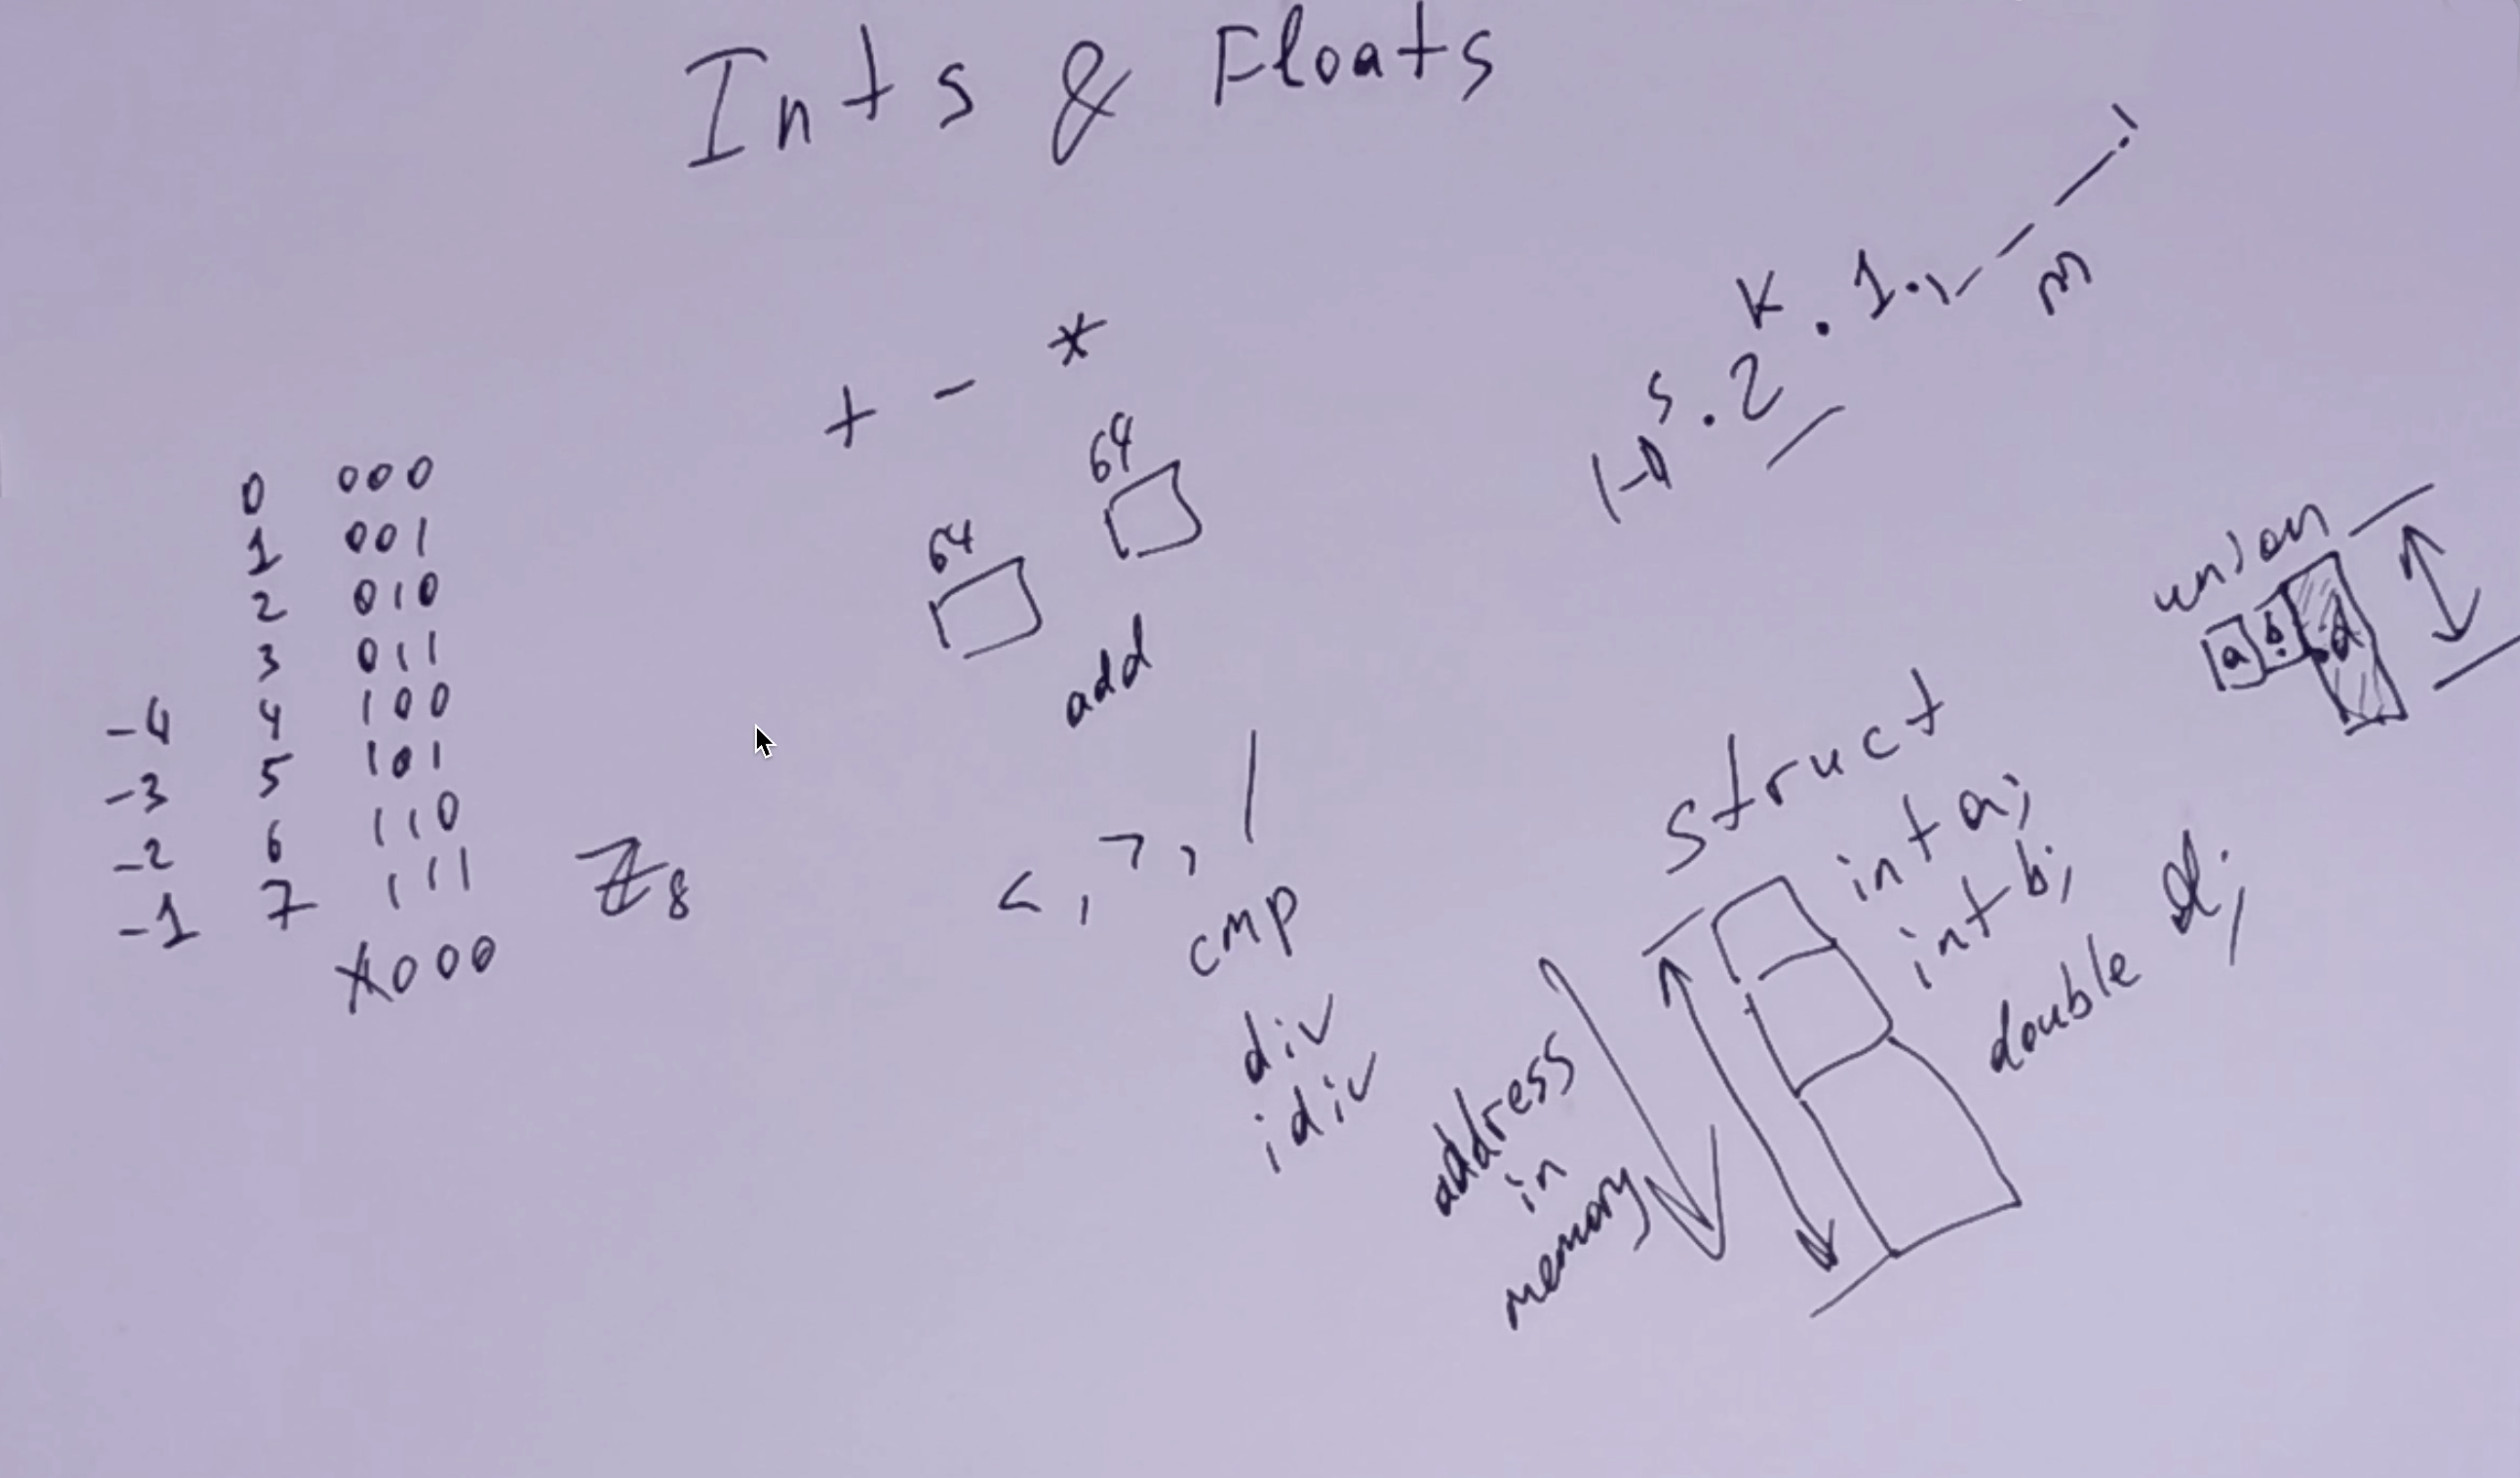 Ints & Floats
0 000
1 001
2 010
3 011
-4 4 100
-3 5 101
-2 6 110
-1 7 111
1000
ℤ8
+ - *
64 64
add
<, >, /
cmp
div
idiv
(-1)^s . 2^k . 1.
m
union
a b d
struct
int a;
int b;
double d;
address
in
memory